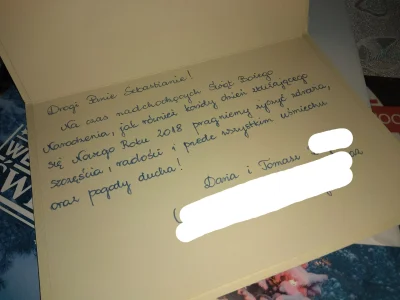 Drogi Panie Sebastianie!
Na czas nadchodzących Świąt Bożego
Narodzenia, jak również każdy dzień zbliżającego
się Nowego Roku 2018 pragniemy życzyć zdrowia,
szczęścia, radości i przede wszystkim uśmiechu
oraz pogody ducha!
Daria i Tomasz